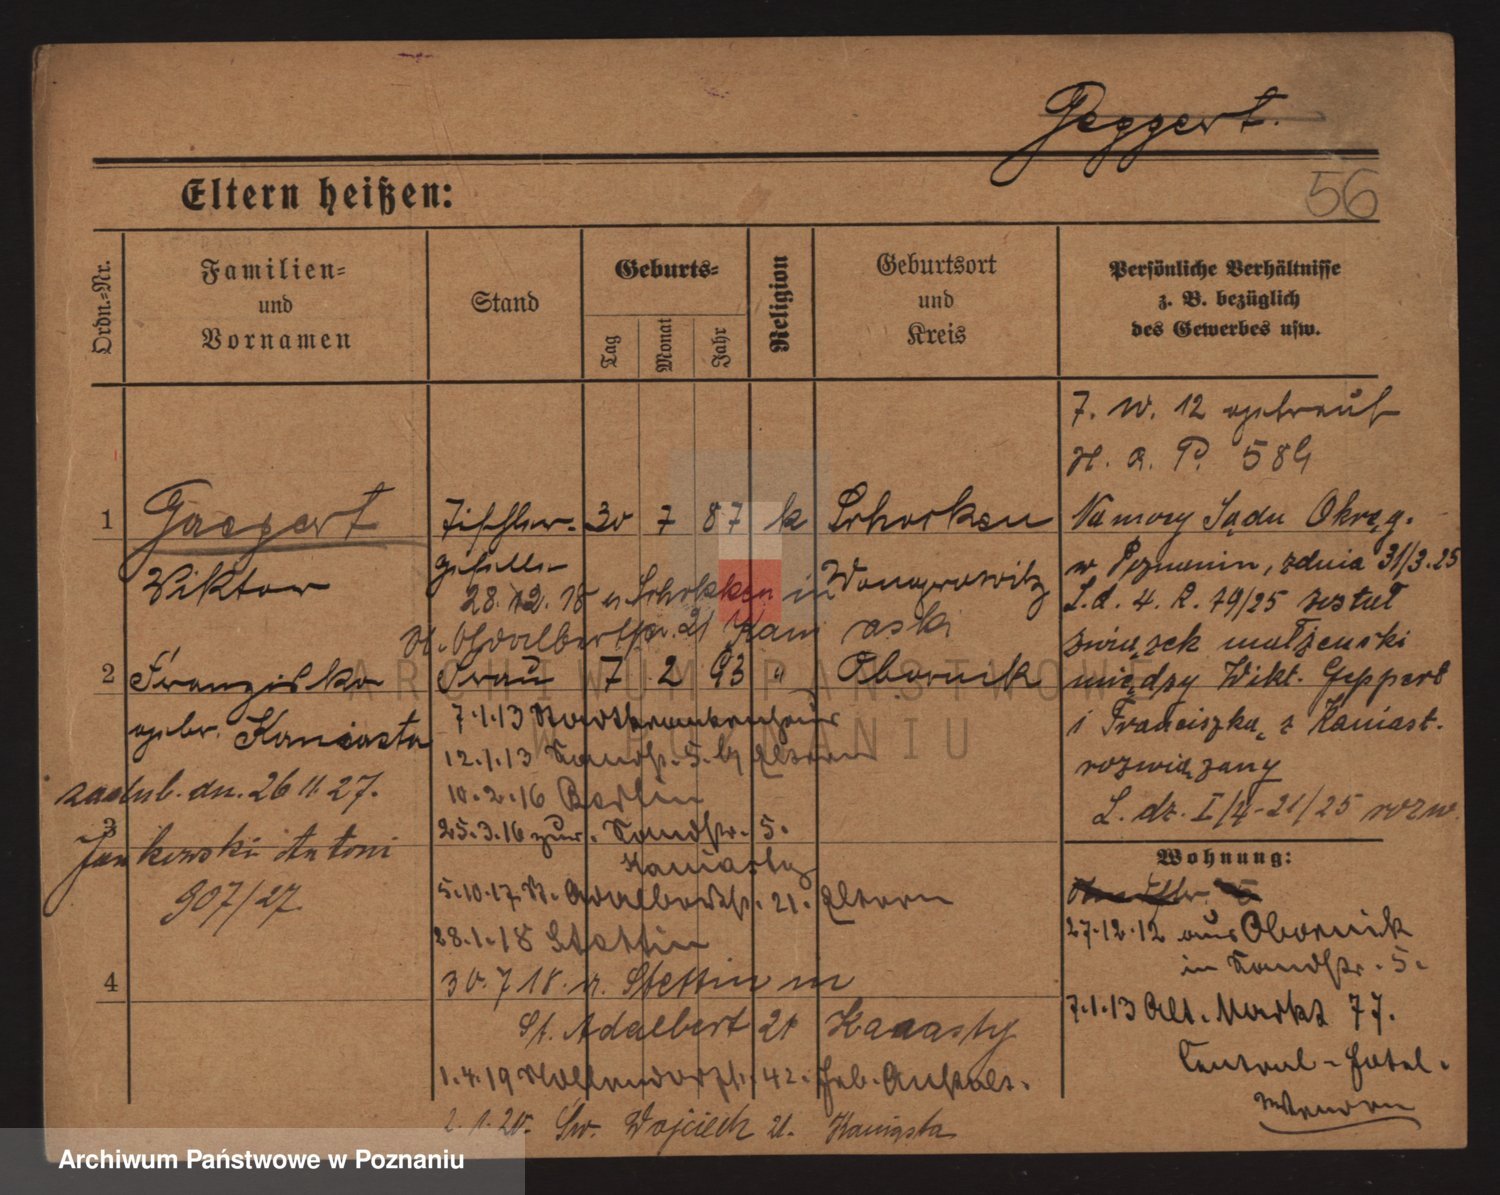 Geppert.
56
Eltern heißen:
Ordn.-Nr.
Familien-
und
Vornamen
Stand
Geburts-
Tag
Monat
Jahr
Religion
Geburtsort
und
Kreis
Persönliche Verhältnisse
z. B. bezüglich
des Gewerbes usw.
7. 12 getrauf
H. R. P. 584
1 Gaeppert Tischler- 30 7 87 k Schocken
Viktor geselle Wongrowitz
28. 12. 18 n Schokken in
St. Adalbertstr. 21
2 Franziska Frau 7 2 93 " Obornik
gebr. Kaniasta
7.1.13 Stadtkrankenhaus
12.1.13 Sandstr. 5. b/ Eltern
10.2.16 Berlin
25.3.16 zur. Sandstr. 5.
Kaniasty
5.10.17. St. Adalbertstr. 21. Eltern
28.1.18 Stettin
30.7.18. v. Stettin in
St. Adalbert 21
1.4.19 42. Heb. Anstalt.
2.1.20. Św. Wojciech 21. Kaniasta
zaślub. dn. 26 11 27.
3
Jankowski Antoni
907/27
4
Na mocy Sądu Okręg.
w Poznaniu, z dnia 31/3.25
L.d. 4. R. 79/25 został
związek małżeński
między Wikt. Geppert
i Franciszką z Kaniast.
rozwiązany
L. dz. I/4-21/25 rozw.
Wohnung:
27.12.12 aus Obornik
in Sandstr. 5.
7.1.13 Alt. Markt 77.
Central-Hotel.
ARCHIWUM PAŃSTWOWE
W POZNANIU
Archiwum Państwowe w Poznaniu